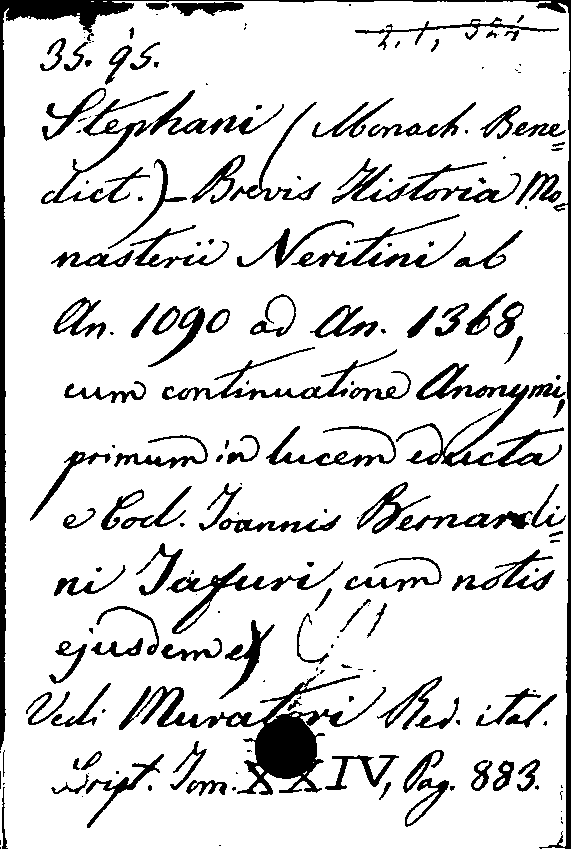 2, 1, 324
35. 95.
Stephani (Monach. Bene=
dict.) – Brevis Historia Mo=
nasterii Neritini ab
An. 1090 ad An. 1368,
cum continuatione Anonymi,
primum in lucem educta
e Cod. Joannis Bernardi=
ni Tafuri, cum notis
ejusdem
Vedi Muratori Rer. ital.
Script. Tom. XXIV, Pag. 883.